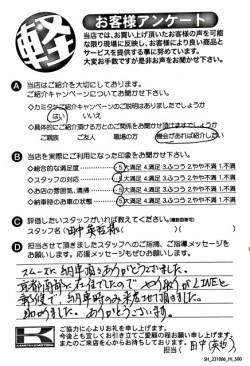 軽
お客様アンケート
当店では、お買い上げ頂いたお客様の声を可能
な限り現場に反映し、お客様により良い商品と
サービスを提供する事に努めています。
大変お手数ですが是非お声をお聞かせ下さい。
A 当店はご紹介を大切にしております。
ご紹介キャンペーンについてお聞かせ下さい。
◇カミタケご紹介キャンペーンのご説明はありましたでしょうか
はい いいえ
◇具体的にご紹介頂ける方とのご関係をお聞かせ頂けますでしょうか
ご親族 ご友人 職場の方 機会があれば紹介したい
B 当店を実際にご利用になった印象をお聞かせ下さい。
◇総合的な満足度 5.大満足 4.満足 3.ふつう 2.やや不満 1.不満
◇スタッフの対応 5.大満足 4.満足 3.ふつう 2.やや不満 1.不満
◇お店の雰囲気、清掃 5.大満足 4.満足 3.ふつう 2.やや不満 1.不満
◇納車時のお車の状態 5.大満足 4.満足 3.ふつう 2.やや不満 1.不満
C 評価したいスタッフがいれば教えてください。(複数回答可)
スタッフ名(田中
D 担当させて頂きましたスタッフへのご指摘、ご指導メッセージを
お願いします。応援メッセージもぜひお願いします。
スムーズに納車頂きありがとうございました。
京都南部に在住でしたので やり取りがLINEと
郵便で、納車時のみ来店させて頂きました。
助かりました。ありがとうございます。
ご協力に心よりお礼を申し上げます。
今後とも宜しくお引き立てご愛顧の程お願い申し上げます。
またのご来店を心からお待ちしております。
担当( 田中
SH_231008_HI_500